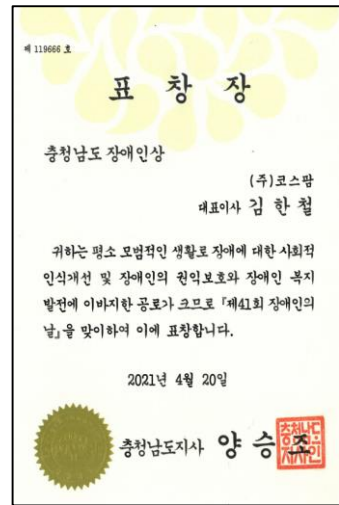 제 119666 호
표 창 장
충청남도 장애인상
(주)코스팜
대표이사 김 한 철
귀하는 평소 모범적인 생활로 장애에 대한 사회적
인식개선 및 장애인의 권익보호와 장애인 복지
발전에 이바지한 공로가 크므로 『제41회 장애인의
날』을 맞이하여 이에 표창합니다.
2021년 4월 20일
충청남도지사 양 승 조